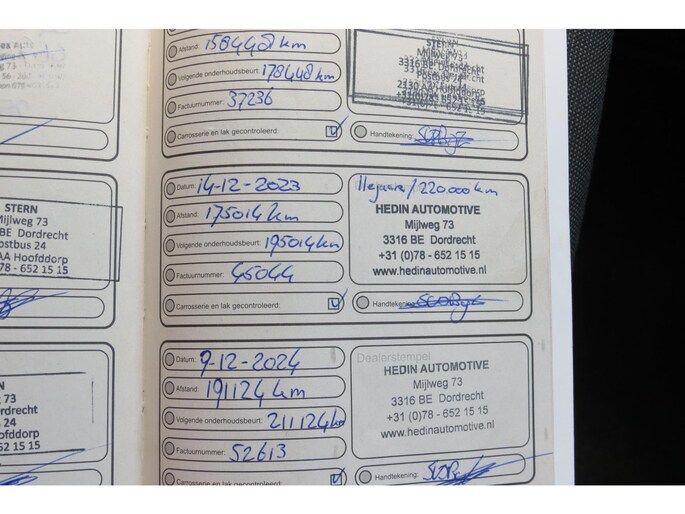 Afstand: 158448 km
Volgende onderhoudsbeurt: 178448 km
Factuurnummer: 37236
Carrosserie en lak gecontroleerd:
STERN
Mijlweg 73
3316 BE Dordrecht
Postbus 24
2130 AA Hoofddorp
+31(0)78 - 652 15 15
Handtekening:
Datum: 14-12-2023
Afstand: 175014 km
Volgende onderhoudsbeurt: 195014 km
Factuurnummer: 45044
Carrosserie en lak gecontroleerd:
/ 220.000 km
HEDIN AUTOMOTIVE
Mijlweg 73
3316 BE Dordrecht
+31 (0)78 - 652 15 15
www.hedinautomotive.nl
Handtekening:
Datum: 9-12-2024
Afstand: 191124 km
Volgende onderhoudsbeurt: 211124 km
Factuurnummer: 52613
Carrosserie en lak gecontroleerd:
Dealerstempel
HEDIN AUTOMOTIVE
Mijlweg 73
3316 BE Dordrecht
+31 (0)78 - 652 15 15
www.hedinautomotive.nl
Handtekening:
STERN
Mijlweg 73
BE Dordrecht
Postbus 24
AA Hoofddorp
0)78 - 652 15 15
STERN
73
24
652 15 15